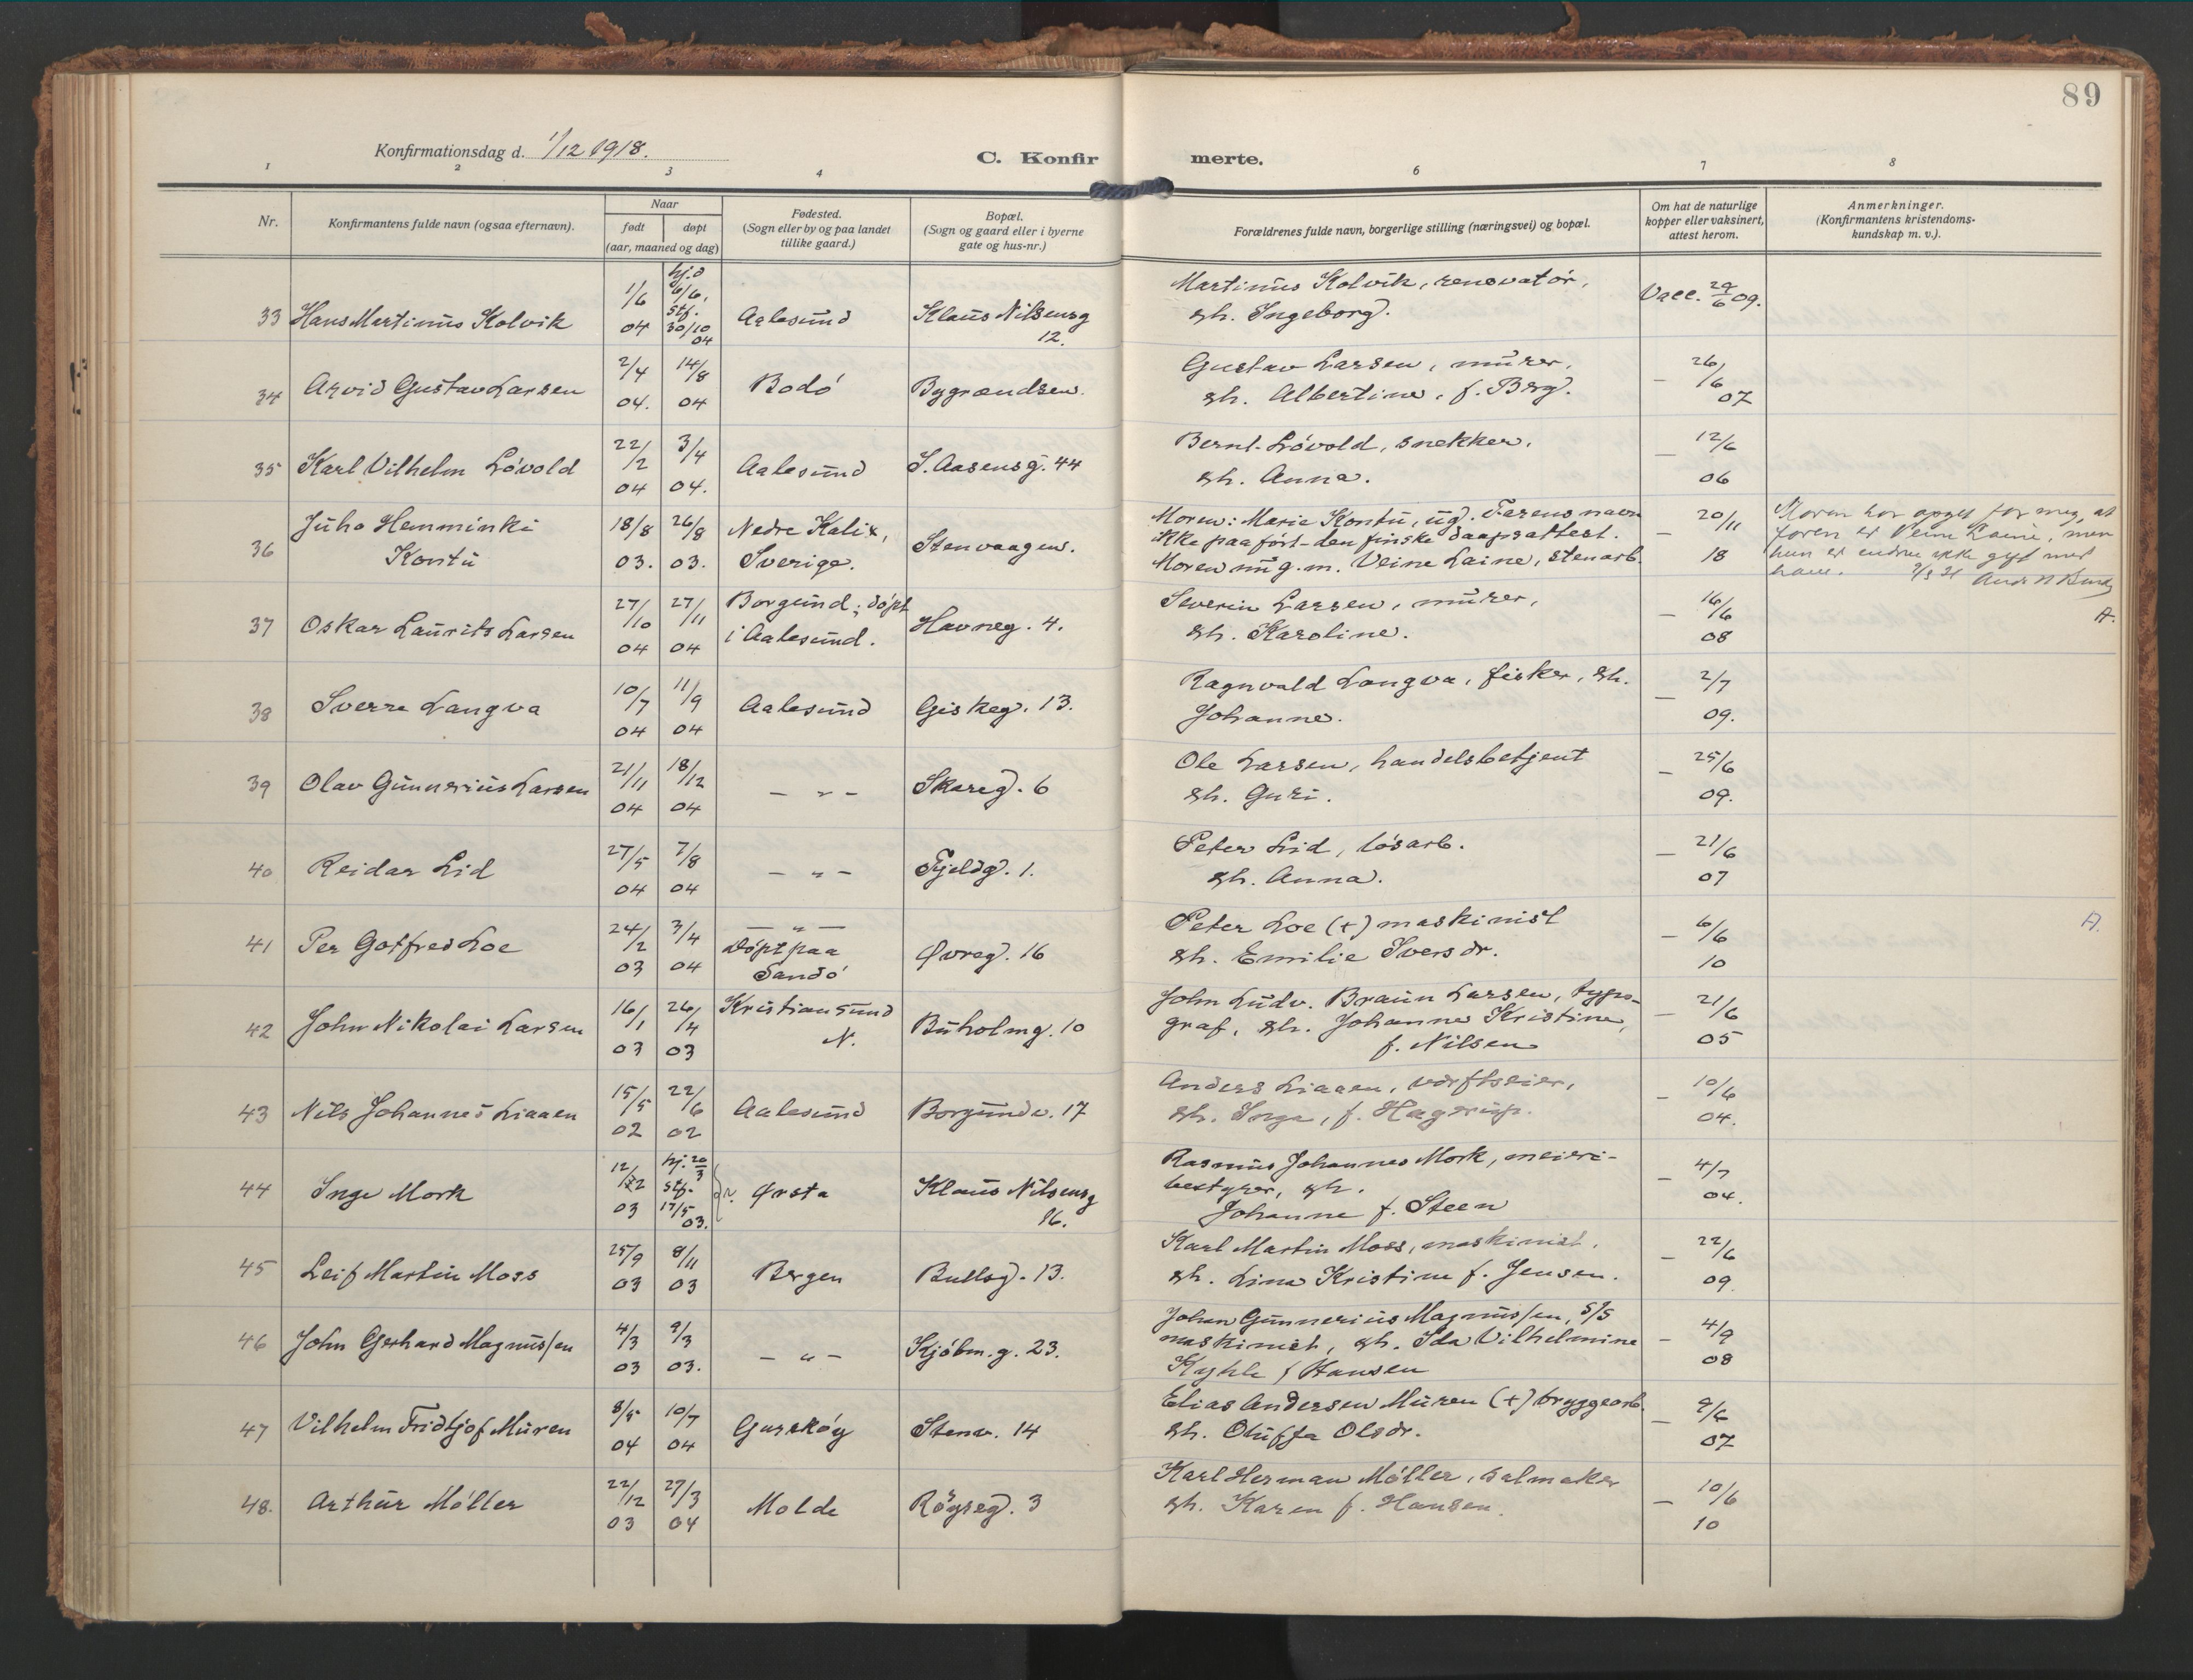 89
Konfirmationsdag d. 1/12 1918.
C. Konfirmerte.
1 2 3 4 6 7 8
Nr.
Konfirmantens fulde navn (ogsaa efternavn).
Naar
født døpt
(aar, maaned og dag)
Fødested.
(Sogn eller by og paa landet
tillike gaard.)
Bopæl.
(Sogn og gaard eller i byerne
gate og hus-nr.)
Forældrenes fulde navn, borgerlige stilling (næringsvei) og bopæl.
Om hat de naturlige
kopper eller vaksinert,
attest herom.
Anmerkninger.
(Konfirmantens kristendoms-
kundskap m. v.).
33 Hans Martinus Kolvik 1/6 04 hj.d 6/6, stf. 30/10 04 Aalesund Klaus Nilsensg 12.
Martinus Kolvik, renovatør,
&h. Ingeborg. Vacc. 29/6 09.
34 Arvid Gustav Larsen 2/4 04. 14/8 04 Bodø Bygrændsen.
Gustav Larsen, murer,
&h. Albertine, f. Berg. — 26/6 07
35 Karl Vilhelm Løvold 22/2 04 3/4 04. Aalesund I. Aasensg. 44
Bernt Løvold, snekker,
&h. Anna. — 12/6 06
36 Juho Hemminki Kontu 18/8 03. 26/8 03. Nedre Kalix, Sverige. Stenvaagen.
Moren: Marie Kontu, ug. Farens navn
ikke paaført – den finske daapsattest.
Moren nu g. m. Veine Laine, stenarb. — 20/11 18
Moren har opgit for mig, at
faren er Veine Laine, men
hun er endnu ikke gift med
ham.
37 Oskar Laurits Larsen 27/10 04 27/11 04 Borgund; døpt i Aalesund. Havneg. 4.
Severin Larsen, murer,
&h. Karoline. — 16/6 08 A.
38 Sverre Langva 10/7 04 11/9 04 Aalesund Giskeg. 13.
Ragnvald Langva, fisker, &h.
Johanne. — 2/7 09.
39 Olav Gunnerius Larsen 21/11 04 18/12 04 — " — Skareg. 6
Ole Larsen, handelsbetjent
&h. Guri. — 25/6 09.
40 Reidar Lid 27/5 04 7/8 04 — " — Fjeldg. 1.
Peter Lid, løsarb.
&h. Anna. — 21/6 07
41 Per Gotfred Loe 24/2 03 3/4 04 — " — Døpt paa Sandø Øvreg. 16
Peter Loe (+) maskinist
&h. Emilie Iversdr. — 6/6 10 A.
42 John Nikolai Larsen 16/1 03 26/4 03 Kristiansund N. Buholmg. 10
John Ludv. Braun Larsen, typo-
graf, &h. Johanne Kristine,
f. Nilsen — 21/6 05
43 Nils Johannes Liaaen 15/5 02 22/6 02 Aalesund Borgundv. 17
Anders Liaaen, værftseier,
&h. Inga, f. Hagerup. — 10/6 04.
44 Inge Mork 03 hj. 20/3 stf. 17/5 03. Ørsta Klaus Nilsensg 16.
Rasmus Johannes Mork, meieri-
bestyrer, &h.
Johanne f. Steen — 4/7 04.
45 Leif Martin Moss 25/9 03 8/11 03 Bergen Bullsg. 13.
Karl Martin Moss, maskinist,
&h. Lina Kristine f. Jensen. — 22/6 09
46 John Gerhard Magnussen 4/3 03 9/3 03. — " — Kjøbm.g. 23.
Johan Gunnerius Magnussen, S/S
maskinist, &h. Ida Vilhelmine
Hansen — 4/9 08
47 Vilhelm Fridtjof Muren 8/5 04 10/7 04 Gurskøy Stenv. 14
Elias Andersen Muren (+) bryggearb.
&h. Oluffa Olsdr. — 9/6 07
48. Arthur Møller 22/12 03 27/3 04 Molde Røyseg. 3
Karl Herman Møller, salmaker
&h. Karen f. Hansen. — 10/6 10